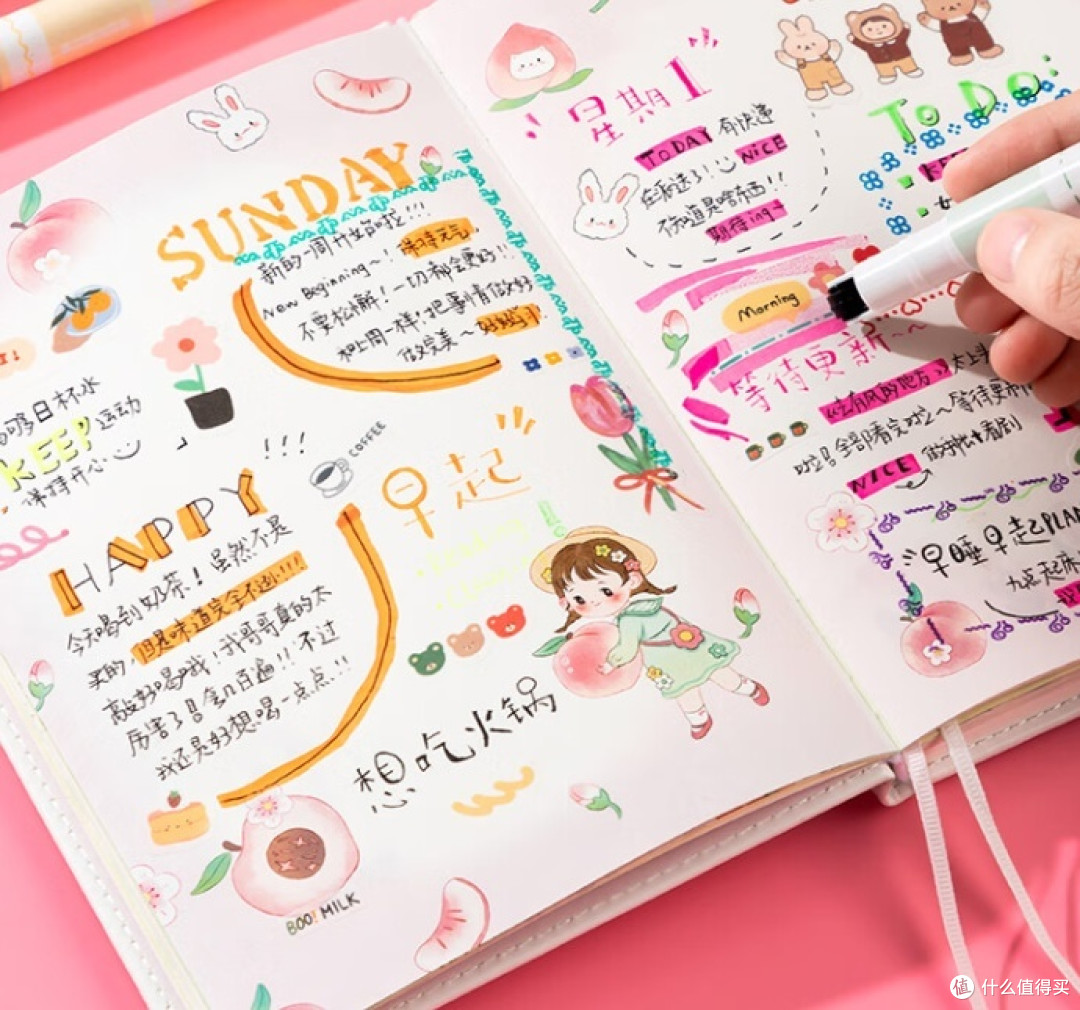 SUNDAY
新的一周开始啦!!!
New Beginning~! 保持元气,
不要松懈!一切都会更好!!
和上周一样!把事情做好
做完美~
日杯水
KEEP 运动
保持开心
HAPPY !!!
今天喝到奶茶!虽然不是
买的,但是味道完全不逊!!!
我哥哥真的太
厉害了!! 不过
我还是好想喝一点点!!
COFFEE
早起
想吃火锅
BOO! MILK
星期1
TODAY 有快递
在派送了! NICE
不知道是啥东西!!
期待ing
TO DO
Morning
等待更新~~
去有风的地方
啦!! 全部看完啦~等待更新
NICE
早睡早起PLAN
九点起床
值 什么值得买